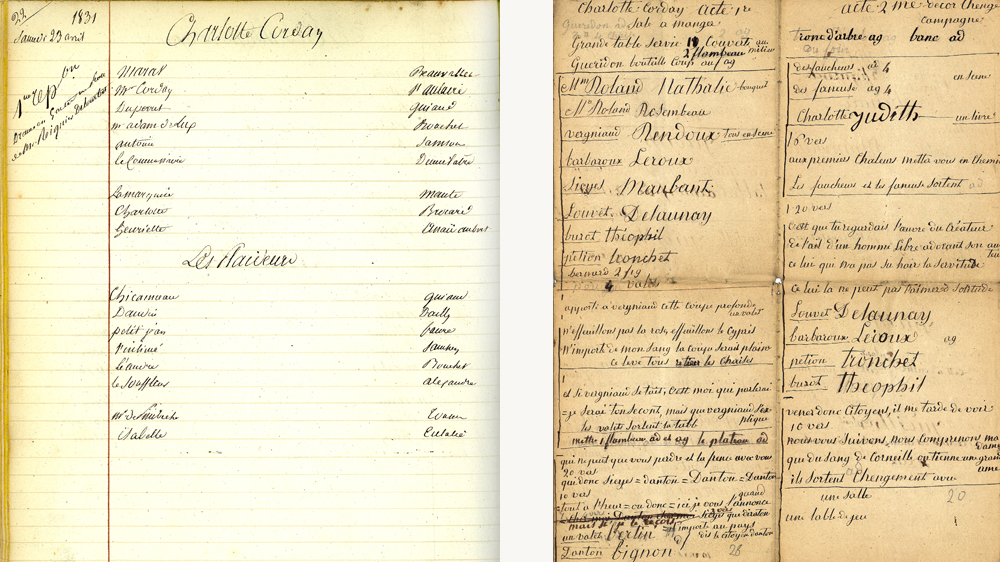 29
1831
Samedi 23 avril
Charlotte Corday
1ère repon
Drame en
de Mr Régnier Destourbet
Marat Beauvallet
Mr Corday St aulaire
Duperret Guiaud
m adam de Lux Bouchet
antoine Samson
le Commissaire Dumilatre
La marquise mante
Charlotte Brocard
henriette anaïs aubert
Les Plaideurs
Chicanneau guiaud
Dandin Dailly
petit jean faure
l'intimé Samson
Léandre Bouchet
le Souffleur alexandre
isabelle Eulalie
Charlotte Corday acte 1re
Sale a manger
Grande table servie 11 Couverts au
2 flambeau milieu
Gueridon bouteille Coup au ag
Mme Roland Nathalie bouquet
Mr Roland Rosembeau
vergniaud Rendoux tous en scene
barbaroux Leroux
Sieyes Maubant
Louvet Delaunay
buzot théophil
petion tronchet
bernard 2 f 19
4 valets
apporte a vergniaud cette Coup profonde
un valet
n'effeuillons pas la rose, effeuillons le Cyprès
N'import de mon sang la coupe serait pleine
ce levé tous retirer les chaises
et si vergniaud se tait, C'est moi qui parlerai
=je serai ton second, mais que vergniaud s'ex
plique
les valets sortent la table
mettre 1 flambeau ad et ag le plateau ad
qui ne peut que vous padre et la frence avec vous
20 vers
qui donc Sieyes = danton = Danton = Danton
10 vers
quand
=tout a l'heur = ou donc = ici je vous l'annonce
un valet berlin
import au pays
dit le citoyen danton
Danton bignon
26
acte 2 me decor Change
campagne
tronc d'arbre ag banc ad
des faucheurs ad 4
en scene
des faneuse ag 4
Charlotte Judith un livre
16 vers
aux premies Chaleurs metta vous en Chemin
Les faucheurs et les faneus sortent ad
20 vers
c'est que tu regardais l'auvre du Créateur
de l'œil d'un homme Libre adorant son auteur
ce lui qui n'a pas su haïr la servitude
ce lui la ne peut pas t'aimer ô solitude
Louvet Delaunay
barbaroux Leroux ag
petion tronchet
buzot théophil
venez donc Citoyens, il me tarde de voir
10 vers
nous vous Suivons, nous Comprenons
que du sang de Corneille on tienne une grand
ame
ils sortent Changement avue
une Salle 20
une table de jeu
1